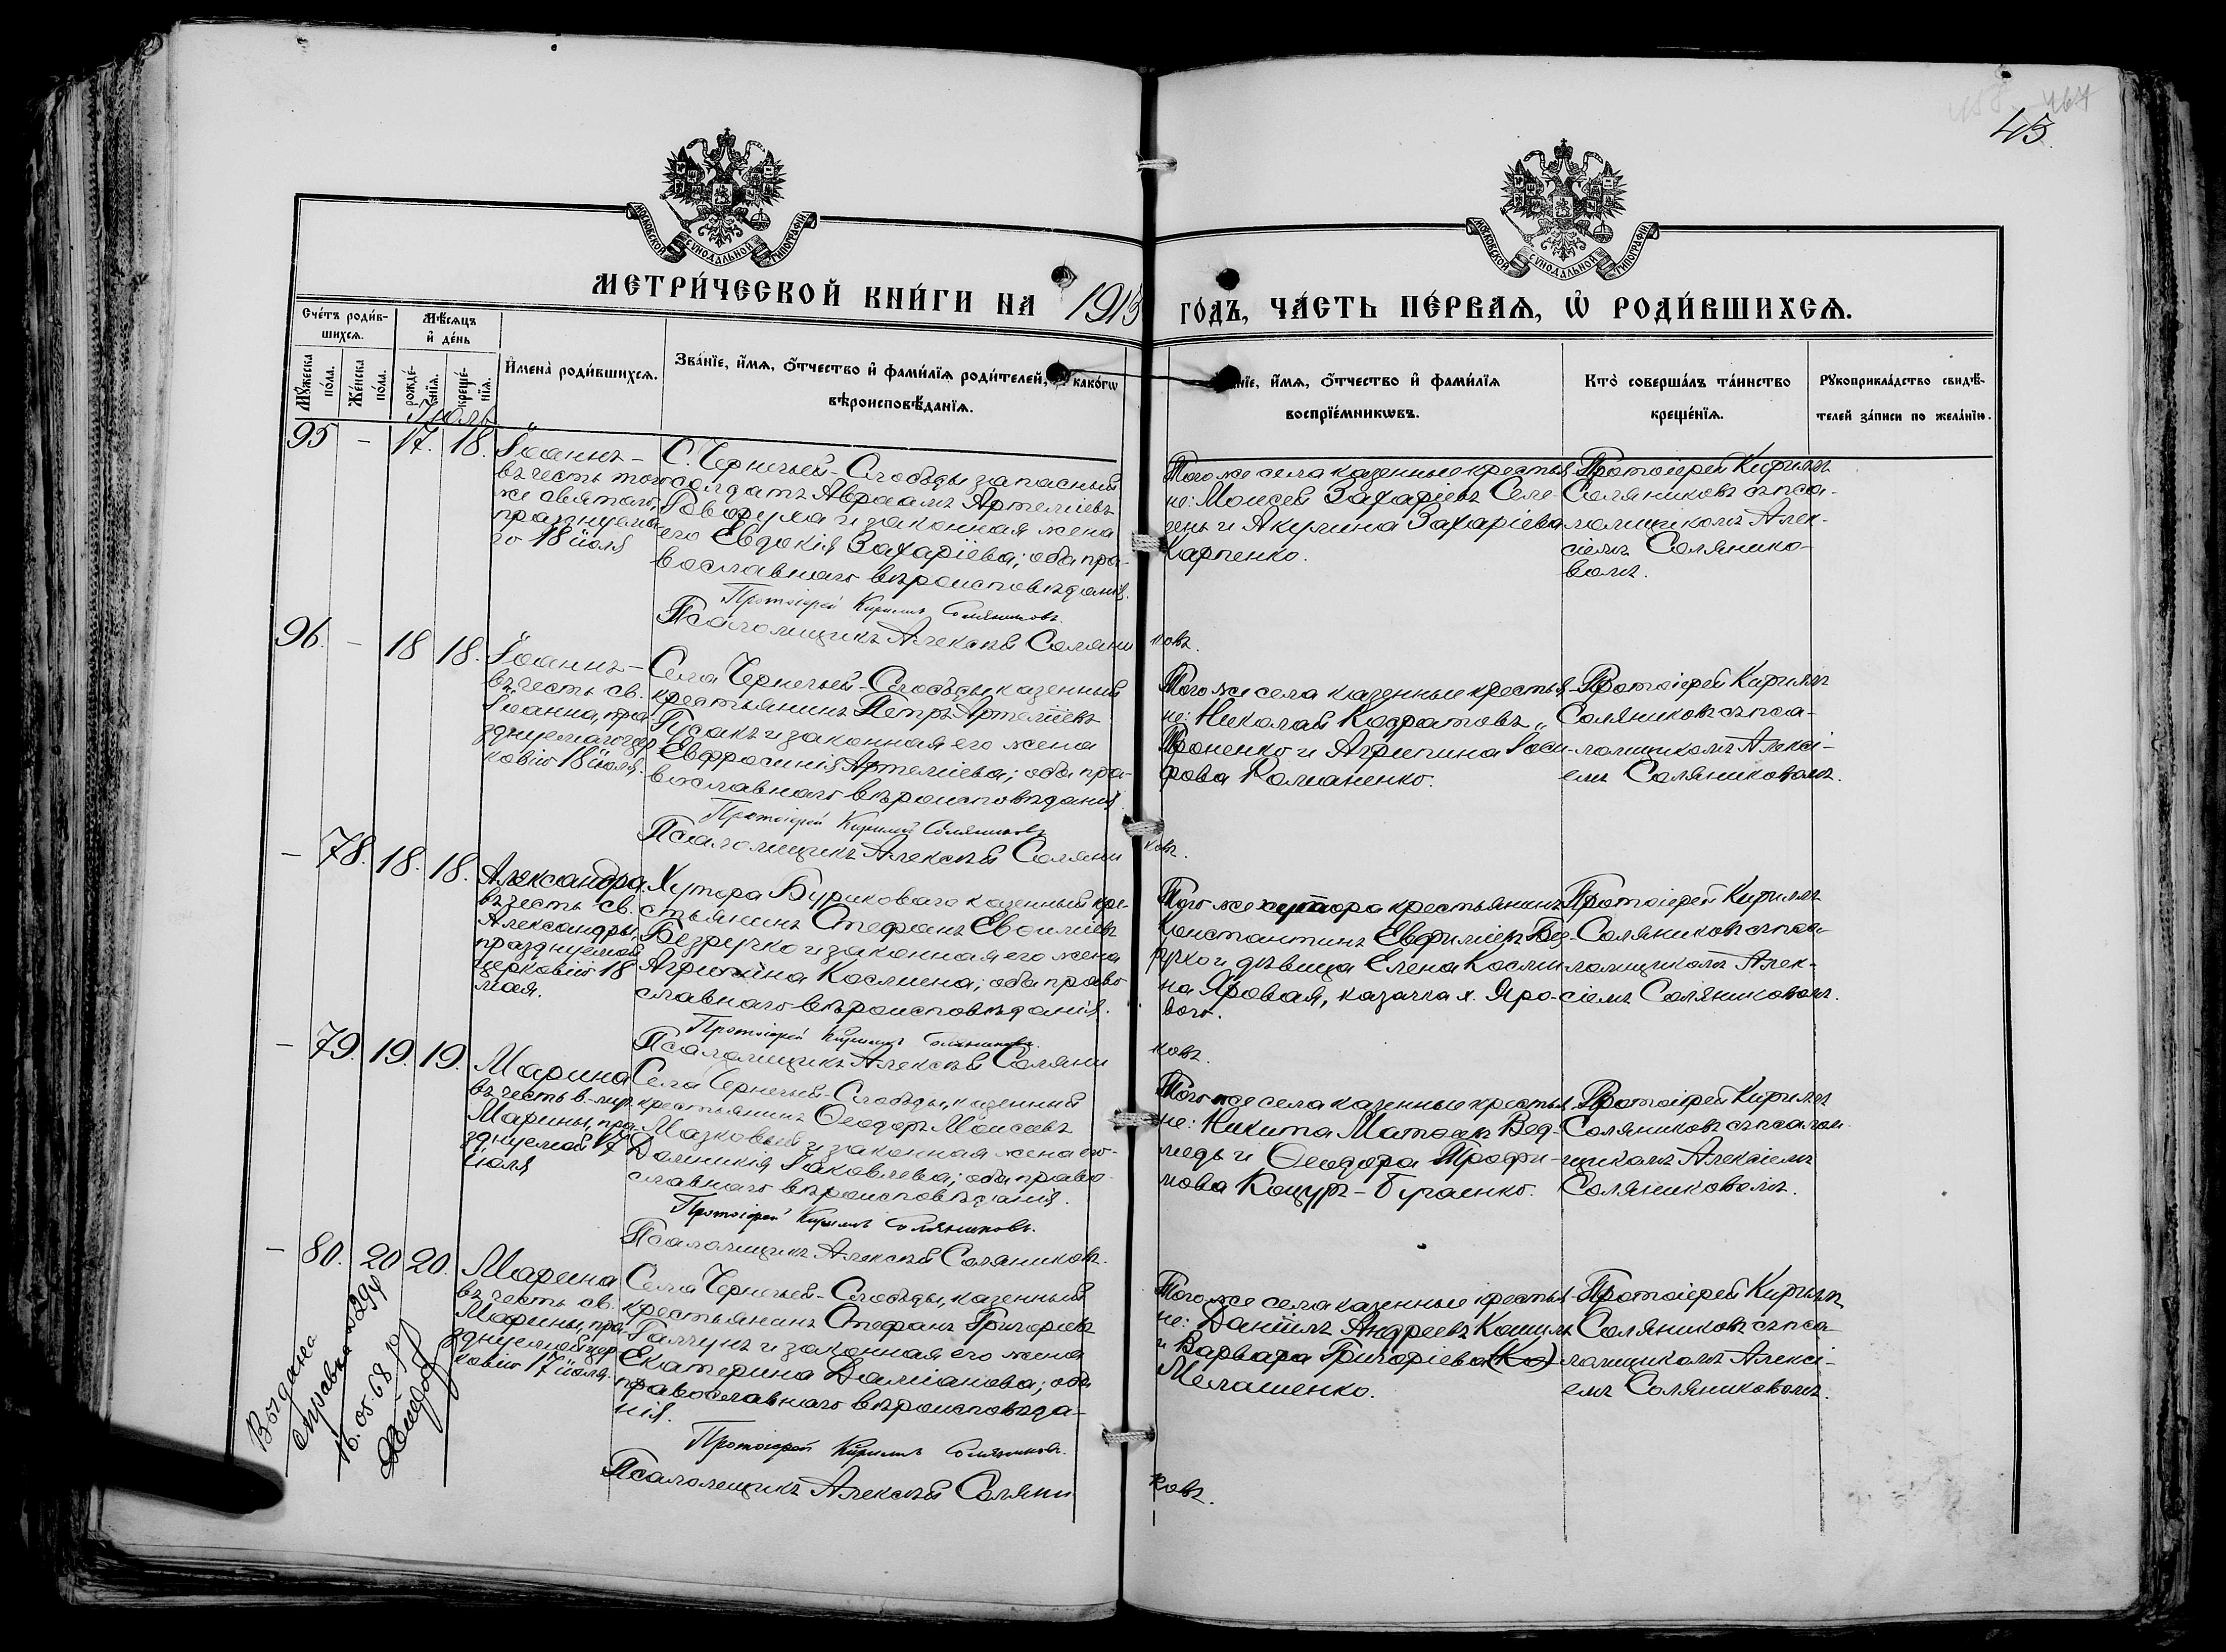 45.
МОСКОВСКОЙ СѴНОДАЛЬНОЙ ТИПОГРАФІИ
МОСКОВСКОЙ СѴНОДАЛЬНОЙ ТИПОГРАФІИ
МЕТРИ́ЧЕСКОЙ КНИ́ГИ НА 1913 ГО́ДЪ, ЧА́СТЬ ПЕ́РВАѦ, Ѡ҆ РОДИ́ВШИХСѦ.
Сче́тъ роди́в-
шихсѧ.
Мꙋ́жеска по́ла.
Же́нска по́ла.
Мѣ́сѧцъ
и҆ де́нь
рожде́-нїѧ.
креще́-нїѧ.
И҆мена̀ роди́вшихсѧ.
Зва́нїе, и҆́мѧ, ѻ҆́тчество и҆ фами́лїѧ роди́телей, и҆ како́гѡ
вѣроисповѣ́данїѧ.
Зва́нїе, и҆́мѧ, ѻ҆́тчество и҆ фами́лїѧ
воспрїе́мникѡвъ.
Кто̀ соверша́лъ та́инство
креще́нїѧ.
Рꙋкоприкла́дство свидѣ́-
телей за́писи по жела́нїю.
Іюль
95 - 17. 18.
Іоаннъ -
въ честь того
же святаго,
празднуема-
го 18 іюля
С. Чернечьей-Слободы запасный
солдатъ Авраамъ Артеміевъ
Говоруха и законная жена
его Евдокія Захаріева; оба пра-
вославнаго вѣроисповѣданія.
Протоіерей Кириллъ Соляниковъ.
Псаломщикъ Алексѣй Соляниковъ.
Того же села казенные крестья-
не: Моисей Захаріевъ Селе-
зень и Акулина Захаріева
Карпенко.
Протоіерей Кириллъ
Соляниковъ съ пса-
ломщикомъ Алек-
сіемъ Солянико-
вомъ.
96. - 18 18.
Іоаннъ -
въ честь св.
Іоанна, пра-
зднуемаго цер-
ковію 18 іюля.
Села Чернечьей-Слободы казенный
крестьянинъ Петръ Артеміевъ
Гусакъ и законная его жена
Евфросинія Артеміева; оба пра-
вославнаго вѣроисповѣданія.
Протоіерей Кириллъ Соляниковъ
Псаломщикъ Алексѣй Соляниковъ.
Того же села казенные крестья-
не: Николай Кодратовъ
Проненко и Агрипина Іоси-
фова Романенко.
Протоіерей Кириллъ
Соляниковъ съ пса-
ломщикомъ Алексі-
емъ Соляниковомъ.
- 78. 18. 18.
Александра
въ честь св.
Александры,
празднуемой
церковію 18
мая.
Хутора Бурикового казенный кре-
стьянинъ Стефанъ Евфиміевъ
Безручко и законная его жена
Агрипина Космина; оба право-
славнаго вѣроисповѣданія.
Протоіерей Кириллъ Соляниковъ.
Псаломщикъ Алексѣй Соляниковъ.
Того же хутора крестьянинъ
Константинъ Евфиміевъ Без-
ручко и дѣвица Елена Косми-
на Яровая, казачка х. Яро-
вого.
Протоіерей Кириллъ
Соляниковъ съ пса-
ломщикомъ Алек-
сіемъ Соляниковомъ.
- 79. 19. 19.
Марина
въ честь в.-муч.
Марины, пра-
зднуемой 17
іюля
Села Чернечьей-Слободы, казенный
крестьянинъ Ѳеодоръ Моисеевъ
Мазковый и законная жена его
Домникія Іаковлева; оба право-
славнаго вѣроисповѣданія.
Протоіерей Кириллъ Соляниковъ.
Псаломщикъ Алексѣй Соляниковъ.
Того же села казенные крестья-
не: Никита Матѳеевъ Вед-
медь и Ѳеодора Трофи-
мова Коцуръ-Бугаенко.
Протоіерей Кириллъ
Соляниковъ съ псалом-
щикомъ Алексіемъ
Соляниковомъ.
- 80. 20 20.
Марина
въ честь св.
Марины, пра-
зднуемой цер-
ковію 17 іюля.
Села Чернечьей-Слободы, казенный
крестьянинъ Стефанъ Григорьевъ
Галчунъ и законная его жена
Екатерина Даміанова; оба
православнаго вѣроисповѣда-
нія.
Протоіерей Кириллъ Соляниковъ.
Псаломщикъ Алексѣй Соляниковъ.
Того же села казенные крестья-
не: Даніилъ Андреевъ Кошиль
и Варвара Григоріева (Ко)
Мелашенко.
Протоіерей Кириллъ
Соляниковъ съ пса-
ломщикомъ Алексі-
емъ Соляниковомъ.
справка
16.05.68